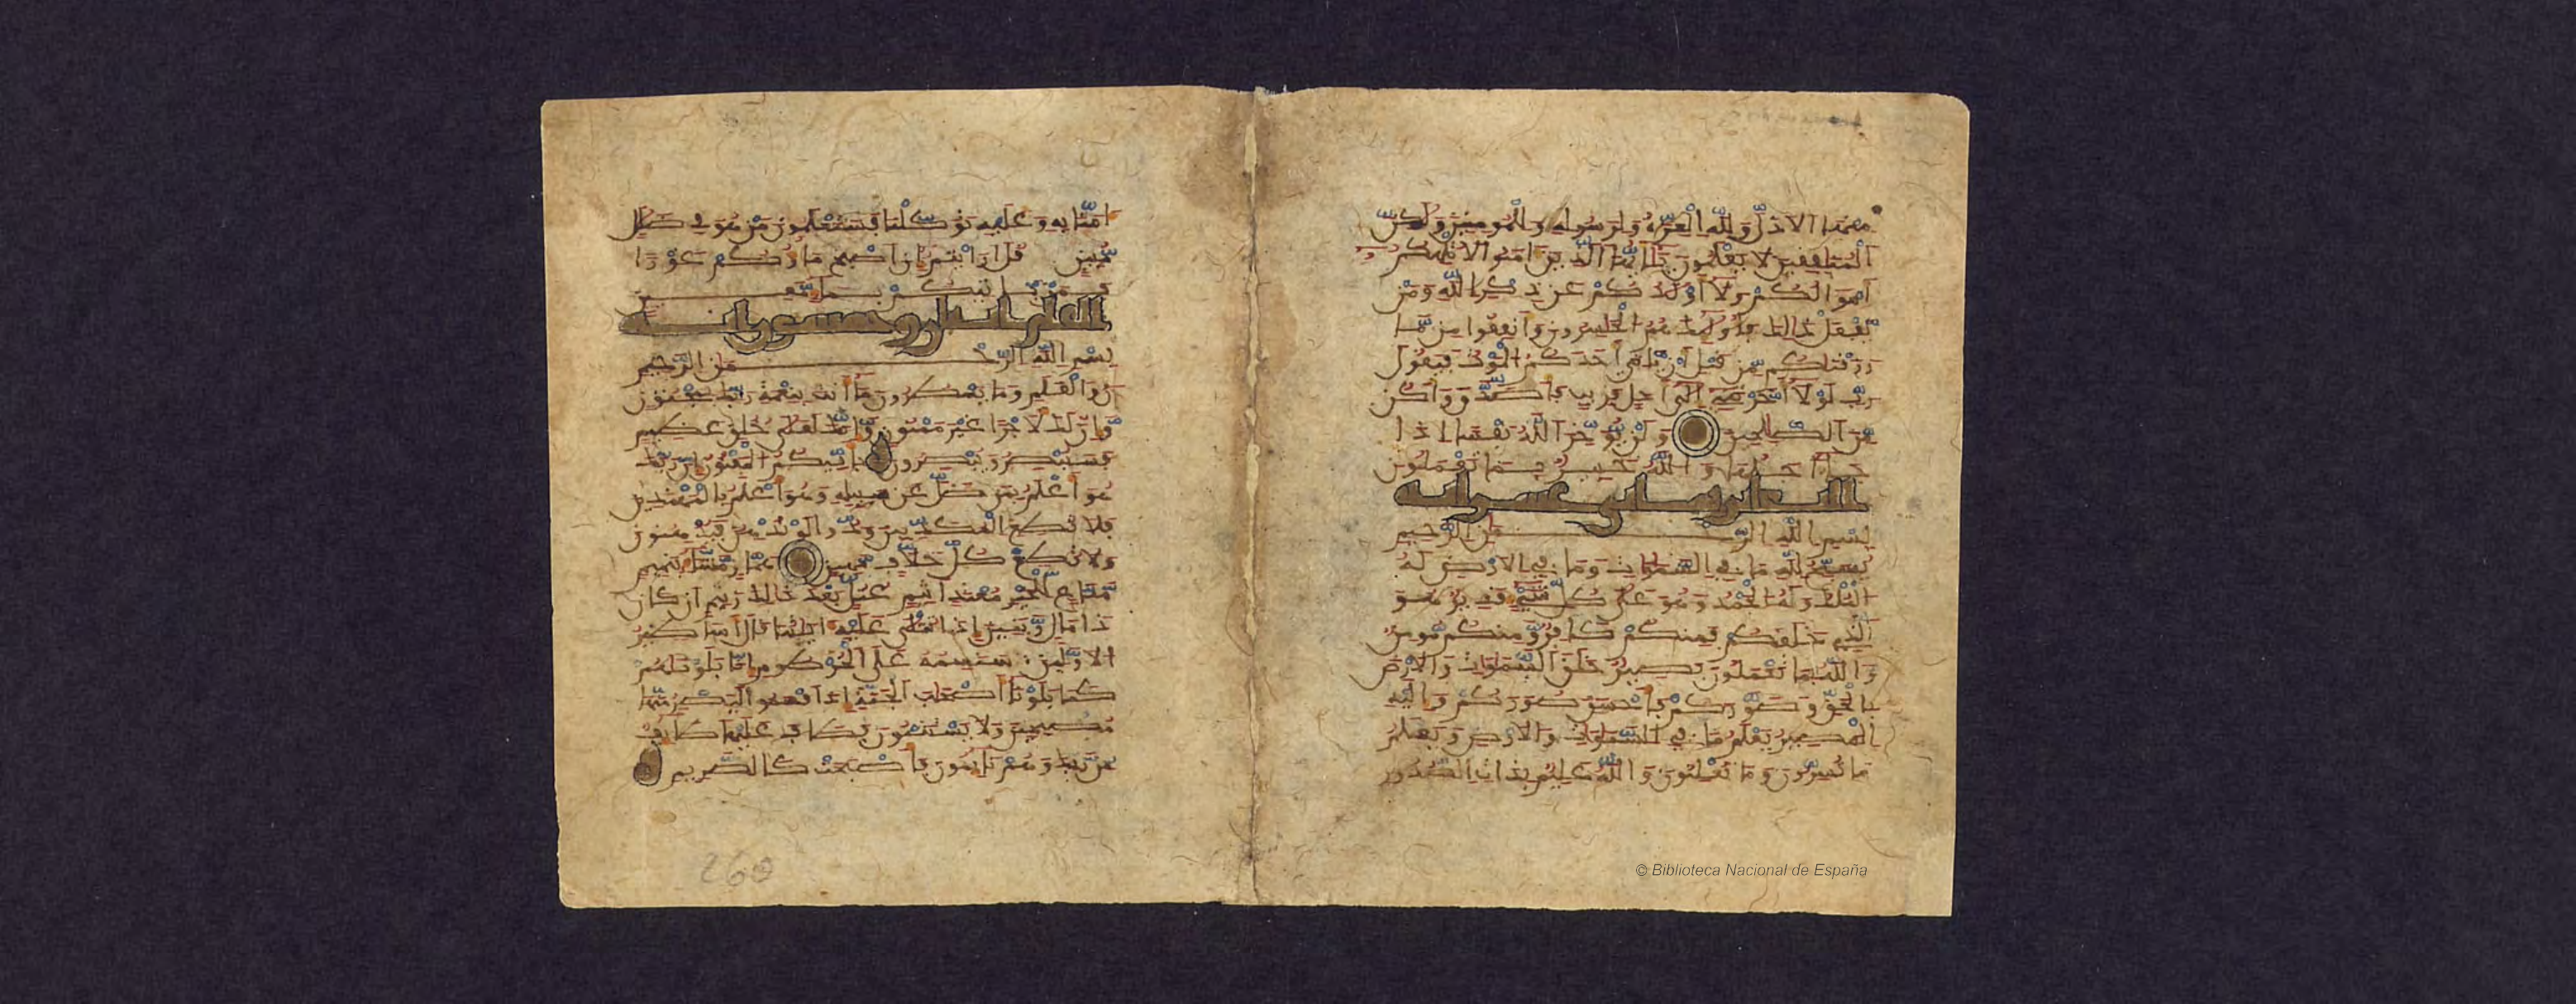 منها الاذل ولله العزة ولرسوله وللمومنين ولكن
المنافقين لا يعلمون يايها الذين امنوا لا تلهكم
اموالكم ولا اولدكم عن ذكر الله ومن
يفعل ذالك فاولئك هم الخسرون وانفقوا من ما
رزقناكم من قبل ان ياتي احدكم الموت فيقول
رب لولا اخرتني الى اجل قريب فاصدق واكن
من الصالحين ولن يوخر الله نفسا اذا
جا اجلها والله خبير بما تعملون
التغابن ثماني عشر اية
بسم الله الرحمن الرحيم
يسبح لله ما في السموات وما في الارض له
الملك وله الحمد وهو على كل شي قدير هو
الذي خلقكم فمنكم كافر ومنكم مومن
والله بما تعملون بصير خلق السموات والارض
بالحق وصوركم فاحسن صوركم واليه
المصير يعلم ما في السموات والارض ويعلم
ما تسرون وما تعلنون والله عليم بذات الصدور
امنا به وعليه توكلنا فستعلمون من هو في ضلل
مبين قل ارايتم ان اصبح ماوكم غورا
فمن ياتيكم بما معين
القلم اثنان وخمسون اية
بسم الله الرحمن الرحيم
ن والقلم وما يسطرون ما انت بنعمة ربك بمجنون
وان لك لاجرا غير ممنون وانك لعلى خلق عظيم
فستبصر ويبصرون باييكم المفتون ان ربك
هو اعلم بمن ضل عن سبيله وهو اعلم بالمهتدين
فلا تطع المكذبين ودوا لو تدهن فيدهنون
ولا تطع كل حلاف مهين هماز مشاء بنميم
مناع للخير معتد اثيم عتل بعد ذالك زنيم ان كان
ذا مال وبنين اذا تتلى عليه ايتنا قال اساطير
الاولين سنسمه على الخرطوم انا بلونهم
كما بلونا اصحاب الجنة اذ اقسموا ليصرمنها
مصبحين ولا يستثنون فطاف عليها طايف
من ربك وهم نايمون فاصبحت كالصريم
260
© Biblioteca Nacional de España